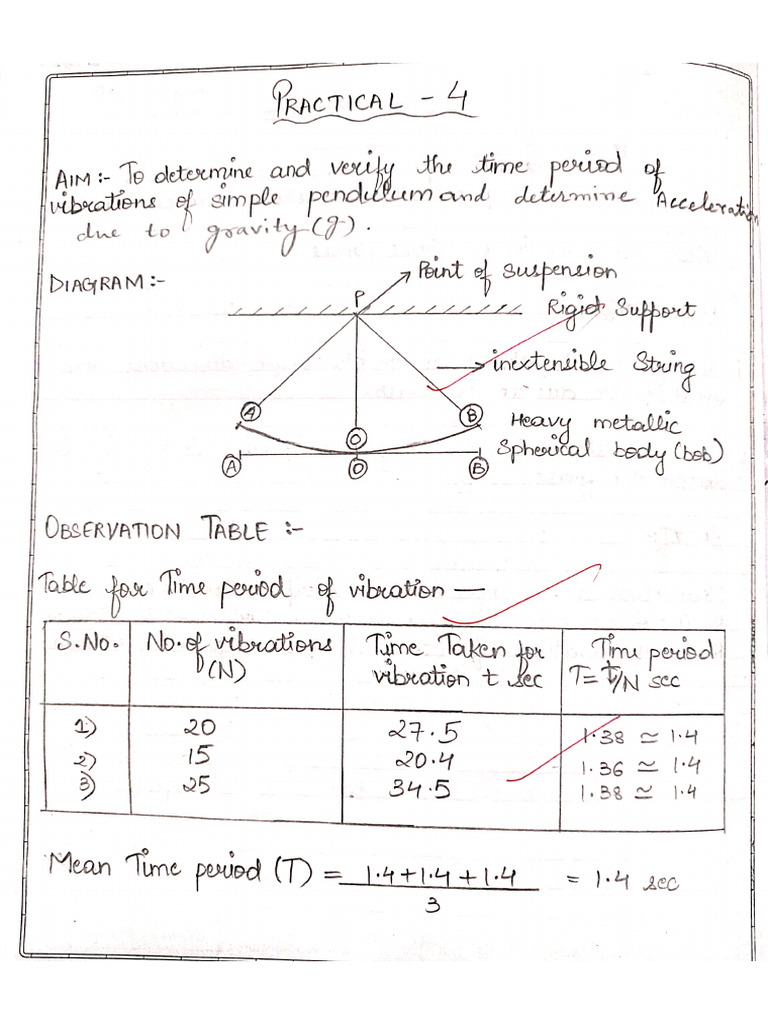 PRACTICAL - 4
AIM:- To determine and verify the time period of
vibrations of simple pendulum and determine Acceleration
due to gravity (g).
DIAGRAM:-
Point of suspension
P
Rigid Support
inextensible String
A
B
Heavy metallic
O
Spherical body (bob)
A
O
B
OBSERVATION TABLE :-
Table for Time period of vibration —
S.No. No. of vibrations (N) Time Taken for vibration t sec Time period T = t/N sec
1) 20 27.5 1.38 ≃ 1.4
2) 15 20.4 1.36 ≃ 1.4
3) 25 34.5 1.38 ≃ 1.4
Mean Time period (T) = 1.4+1.4+1.4 / 3 = 1.4 sec